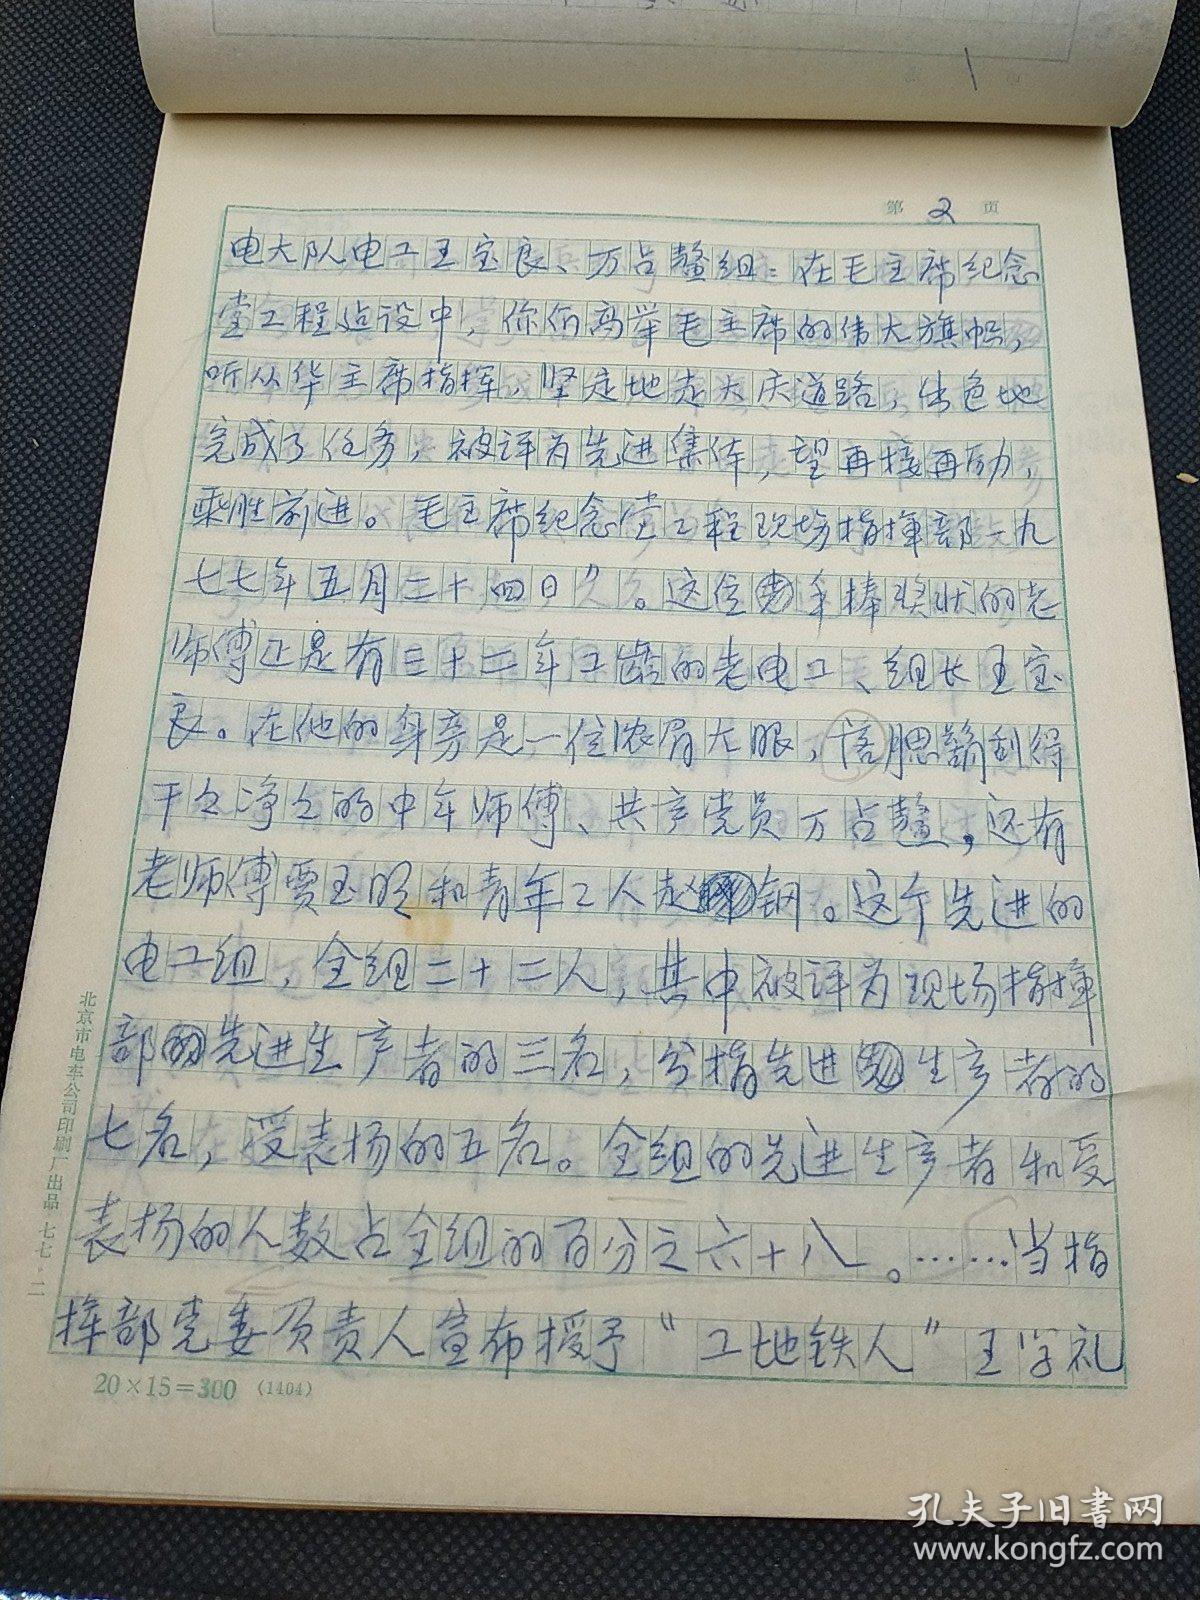 第 2 页
电大队电工王宝良、万占鳌组：在毛主席纪念
堂工程建设中，你们高举毛主席的伟大旗帜，
听从华主席指挥，坚定地走大庆道路，出色地
完成了任务，被评为先进集体，望再接再励，
乘胜前进。毛主席纪念堂工程现场指挥部一九
七七年五月二十四日”。这位手捧奖状的老
师傅正是有三十二年工龄的老电工、组长王宝
良。在他的身旁是一位浓眉大眼，络腮鬍刮得
干々净々的中年师傅、共产党员万占鳌，还有
老师傅贾玉明和青年工人赵钢。这个先进的
电工组，全组二十二人，其中被评为现场指挥
部先进生产者的三名，分指先进生产者的
七名，受表扬的五名。全组的先进生产者和受
表扬的人数占全组的百分之六十八。……当指
挥部党委负责人宣布授予“工地铁人”王学礼
20×15=300 (1404)
北京市电车公司印刷厂出品 七七·二
孔夫子旧书网
www.kongfz.com